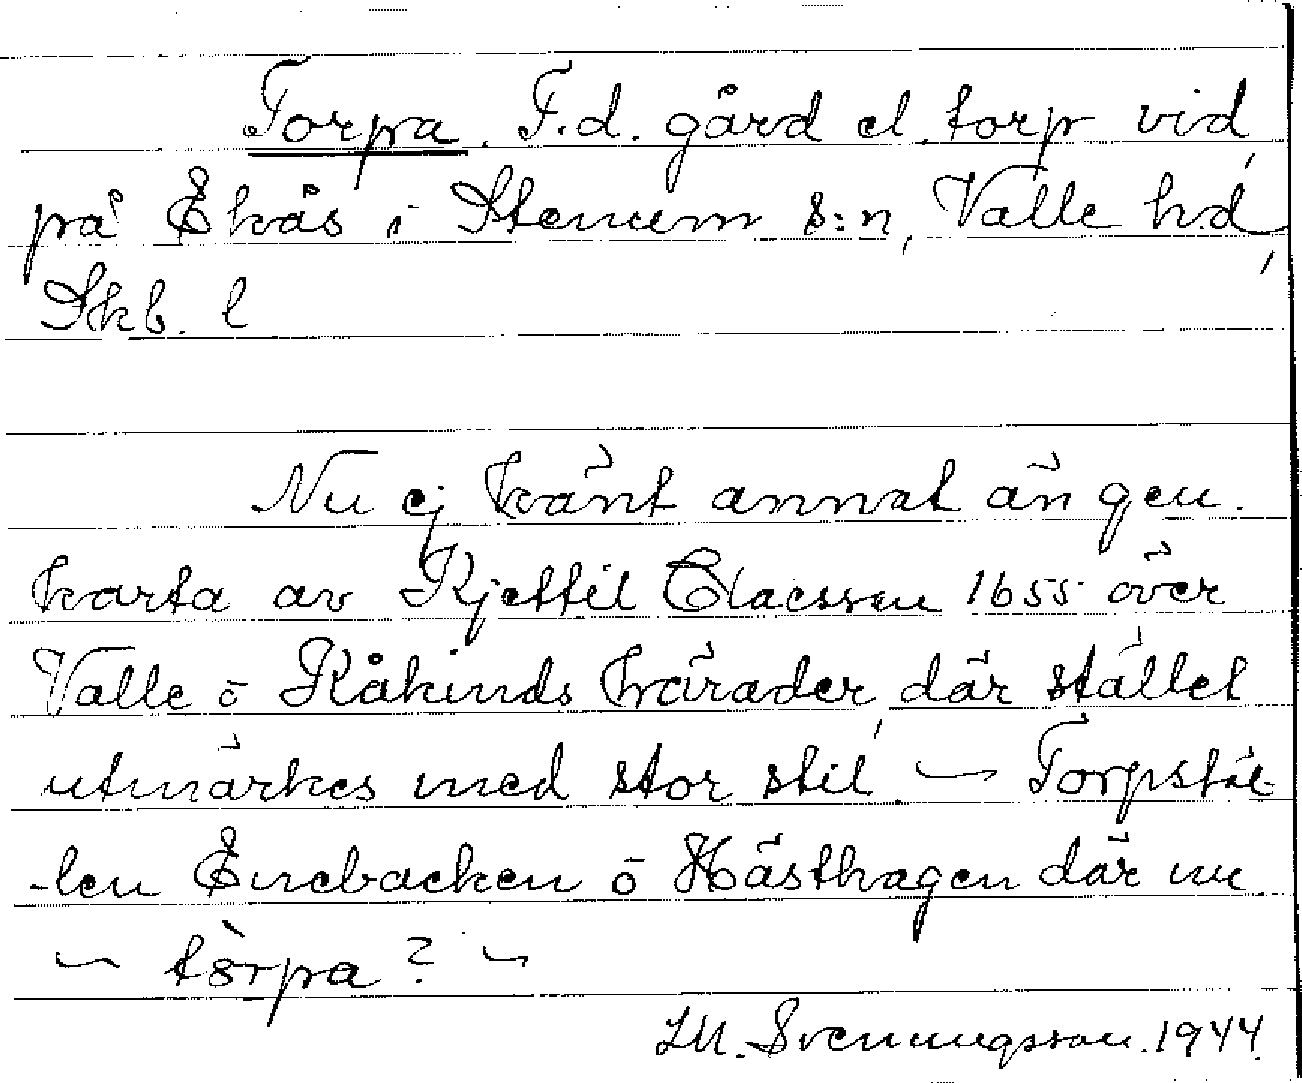 Torpa. F.d. gård el. torp vid,
på Ekås i Stenum s:n, Valle hd,
Skb. l
Nu ej känt annat än gen.
karta av Kjettil Claesson 1655 över
Valle o Kåkinds härader, där stället
utmärkes med stor stil. ~ Torpstäl-
-len Enebacken o Hästhagen där nu
~ tòrpa? ~
I.M. Svenungsson. 1944.